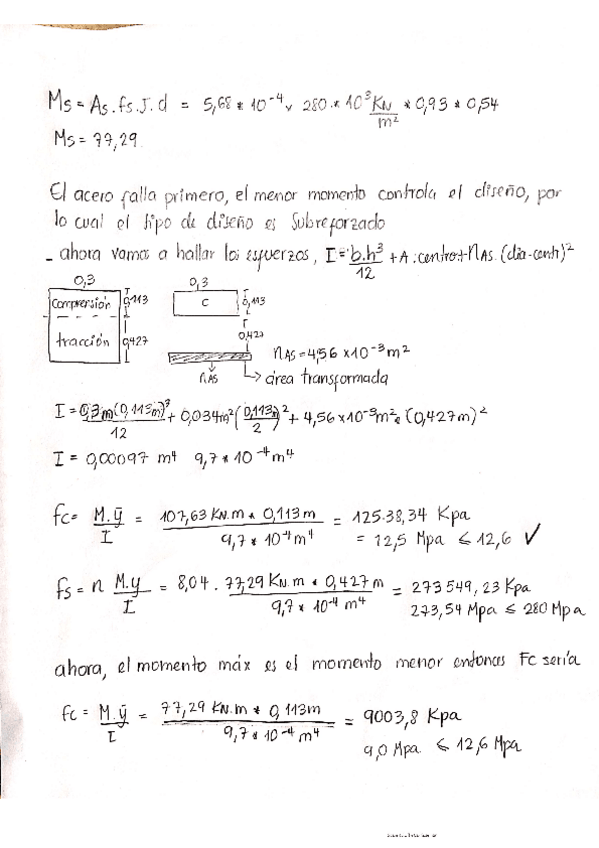 Ms = As.fs.J.d = 5,68 * 10⁻⁴ x 280 * 10³ KN/m² * 0,93 * 0,54
Ms = 77,29
El acero falla primero, el menor momento controla el diseño, por
lo cual el tipo de diseño es Subreforzado
- ahora vamos a hallar los esfuerzos, I = b.h³/12 + A.centro + nAs.(dia-centr)²
0,3
compresión 0,113
tracción 0,427
0,3
C 0,113
0,427
nAs
nAs = 4,56 x 10⁻³ m²
→ área transformada
I = 0,3m(0,113m)³/12 + 0,034m²(0,113m/2)² + 4,56 x 10⁻³ m² * (0,427m)²
I = 0,00097 m⁴ 9,7 * 10⁻⁴ m⁴
fc = M.ȳ/I = 107,63 KN.m * 0,113m / 9,7 * 10⁻⁴ m⁴ = 125.38,34 Kpa
= 12,5 Mpa ≤ 12,6 ✓
fs = n M.y/I = 8,04 . 77,29 KN.m * 0,427m / 9,7 * 10⁻⁴ m⁴ = 273549,23 Kpa
273,54 Mpa ≤ 280 Mpa
ahora, el momento máx es el momento menor entonces Fc sería
fc = M.ȳ/I = 77,29 KN.m * 0,113m / 9,7 * 10⁻⁴ m⁴ = 9003,8 Kpa
9,0 Mpa ≤ 12,6 Mpa